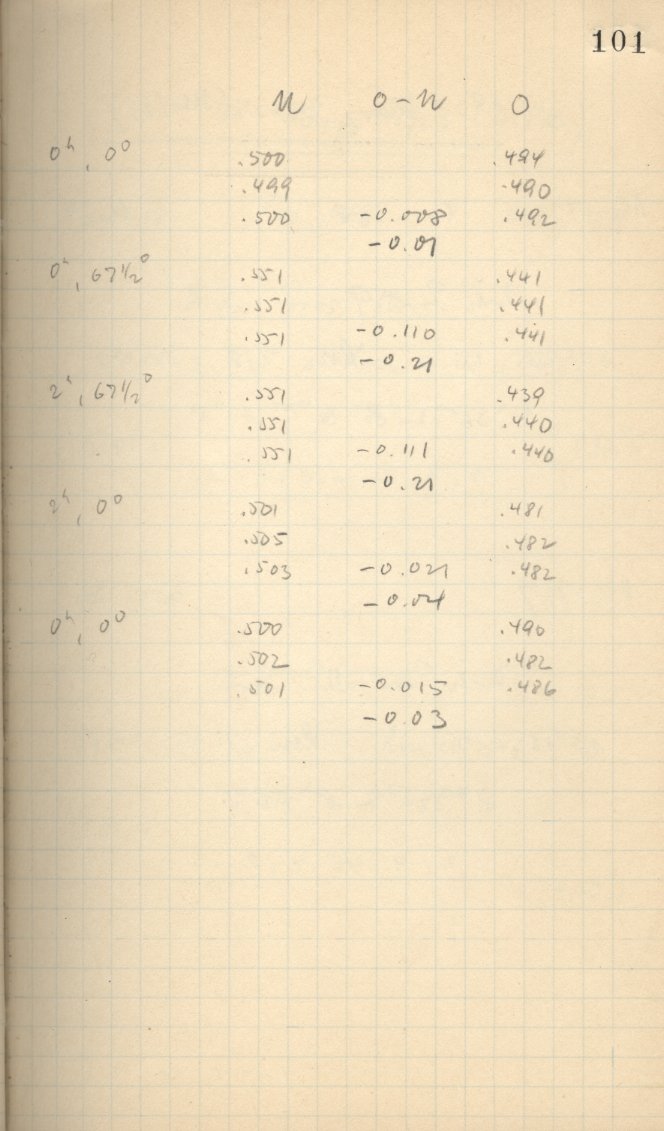 101
N O-N O
0ʰ, 0⁰ .500 .494
.499 .490
.500 -0.008 .492
-0.01
0ʰ, 67½⁰ .551 .441
.551 .441
.551 -0.110 .441
-0.21
2ʰ, 67½⁰ .551 .439
.551 .440
.551 -0.111 .440
-0.21
2ʰ, 0⁰ .501 .481
.505 .482
.503 -0.021 .482
-0.04
0ʰ, 0⁰ .500 .490
.502 .482
.501 -0.015 .486
-0.03